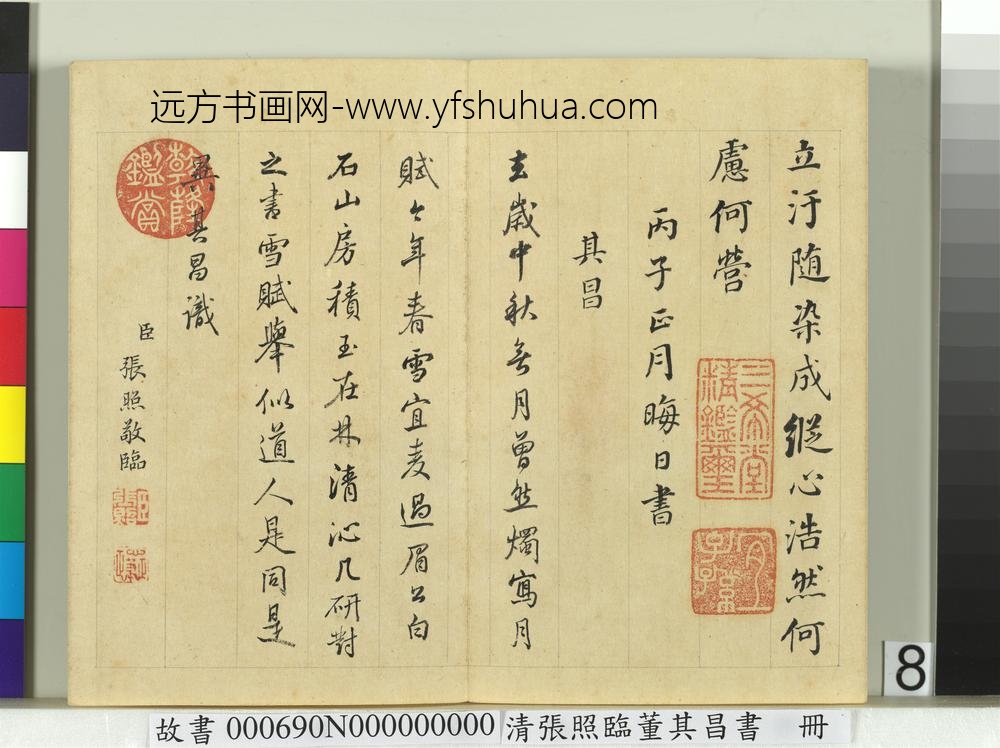 远方书画网-www.yfshuhua.com
立汙随染成縱心浩然何
慮何營
丙子正月晦日書
其昌
去歲中秋無月曾然燭寫月
賦今年春雪宜麦過眉公白
石山房積玉在林清沁几研對
之書雪賦舉似道人是同是
異其昌識
臣張照敬臨
乾隆鑑賞
三希堂精鑑璽
宜子孫
8
故書 000690N000000000 清張照臨董其昌書 冊